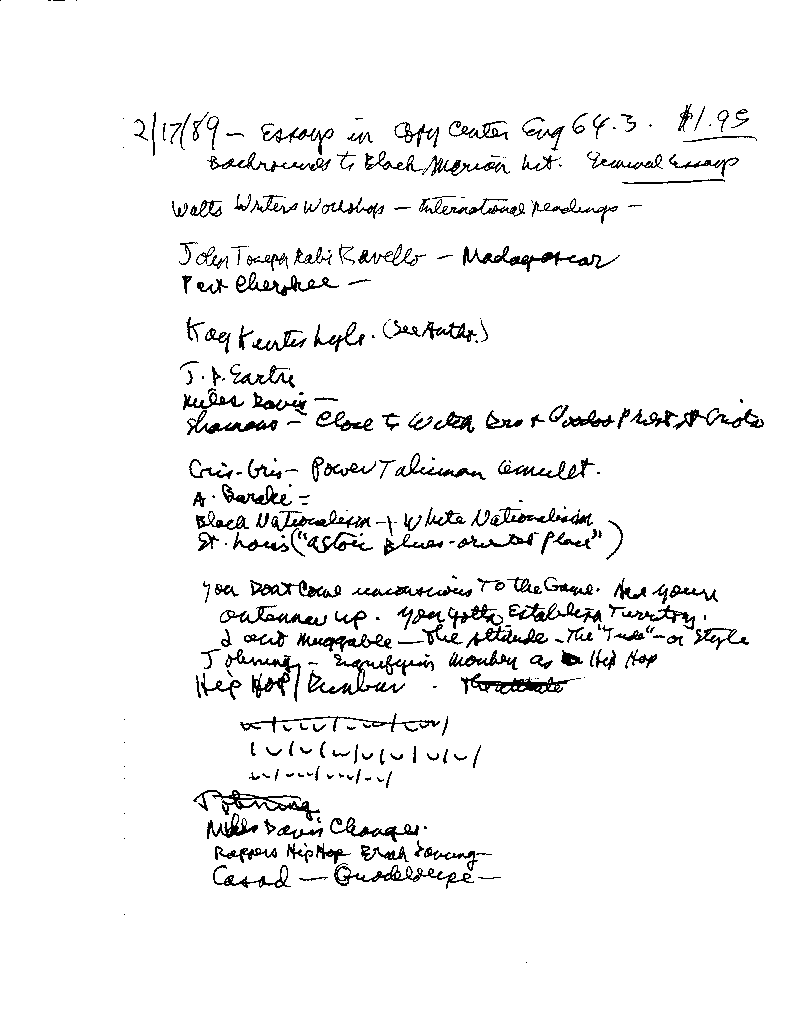 2/17/89 – Essays in Copy Center Eng 64.3. $1.95
Backrounds to Black American Lit. General Essays
Watts Writers Workshop – International Readings –
John Joseph Rabi Ravello – Madagascar
Part Cherokee –
Kay Kurtis Lyle. (See Autho.)
J. P. Sartre
Miles Davis –
Shamans – Close to Witch Drs + Voodoo Priest
Gris-Gris – Power Talisman Amulet.
A. Baraka =
Black Nationalism + White Nationalism
St. Louis ("a stoic Blues-oriented Place")
You Don't Come unconscious To the Game. Have your
antennae up. You gotta Establish Territory.
I aint muggable – The Attitude – The "Tude" – or Style
Toasting – Signifying Monkey as Hip Hop
Hip Hop/Dunbar .
Miles Davis Changes.
Rappers Hip Hop Break Dancing –
– Guadeloupe –